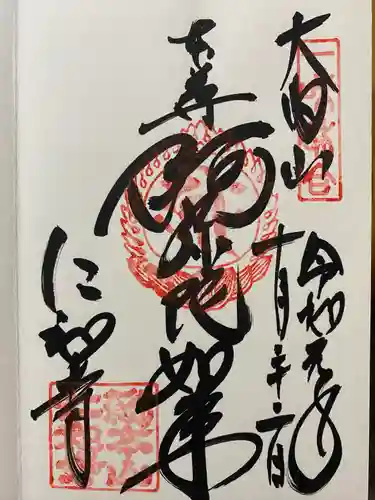 大内山
令和元年
十月二十二日
本尊
阿弥陀如来
仁和寺